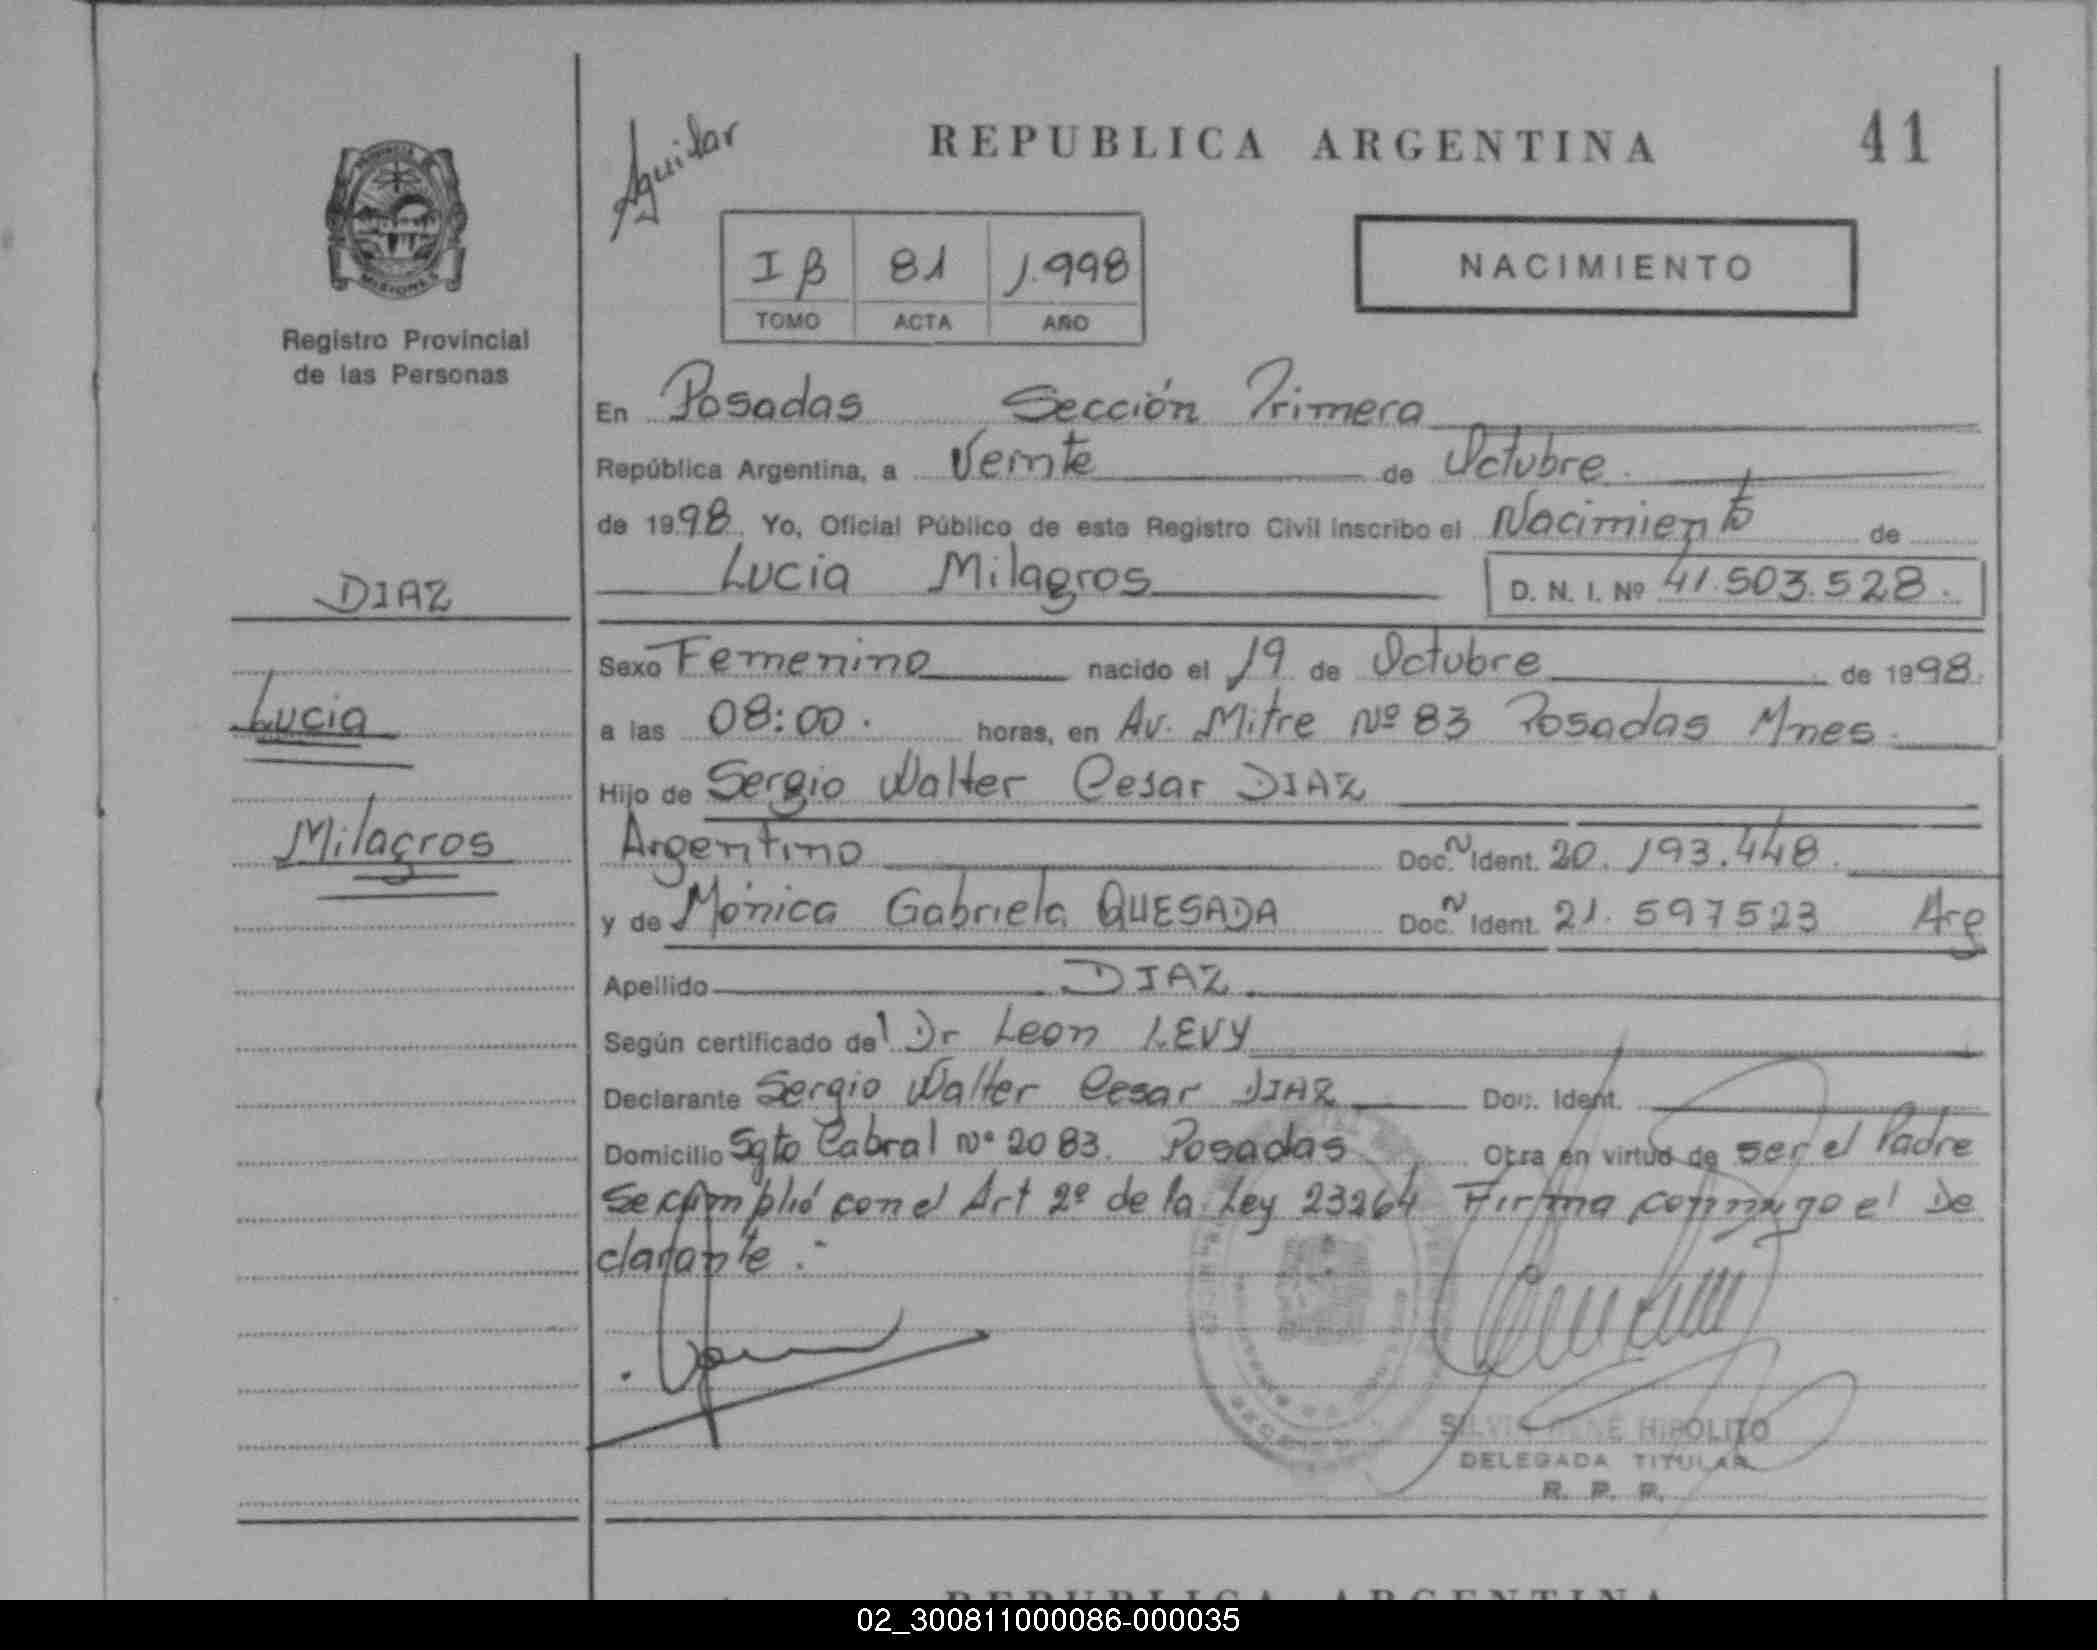 REPUBLICA ARGENTINA
41
Aguilar
PROVINCIA DE
MISIONES
Registro Provincial
de las Personas
I β 81 1.998
TOMO ACTA AÑO
NACIMIENTO
En Posadas Sección Primera
República Argentina, a Veinte de Octubre
de 1998. Yo, Oficial Público de este Registro Civil inscribo el Nacimiento de
Lucia Milagros
D. N. I. Nº 41.503.528.
DIAZ
Lucia
Milagros
Sexo Femenino nacido el 19 de Octubre de 1998.
a las 08:00. horas, en Av. Mitre Nº 83 Posadas Mnes.
Hijo de Sergio Walter Cesar DIAZ
Argentino Doc. N Ident. 20.193.448.
y de Mónica Gabriela QUESADA Doc. N Ident. 21.597523 Arg
Apellido DIAZ
Según certificado del Dr Leon LEVY
Declarante Sergio Walter Cesar DIAZ Doc. Ident.
Domicilio Sgto Cabral Nº 2083. Posadas Obra en virtud de ser el Padre
Se cumplió con el Art 2º de la Ley 23264 Firma conmigo el De
clarante.-
SILVIA RENE HIPOLITO
DELEGADA TITULAR
R. P. P.
REPUBLICA ARGENTINA
02_300811000086-000035